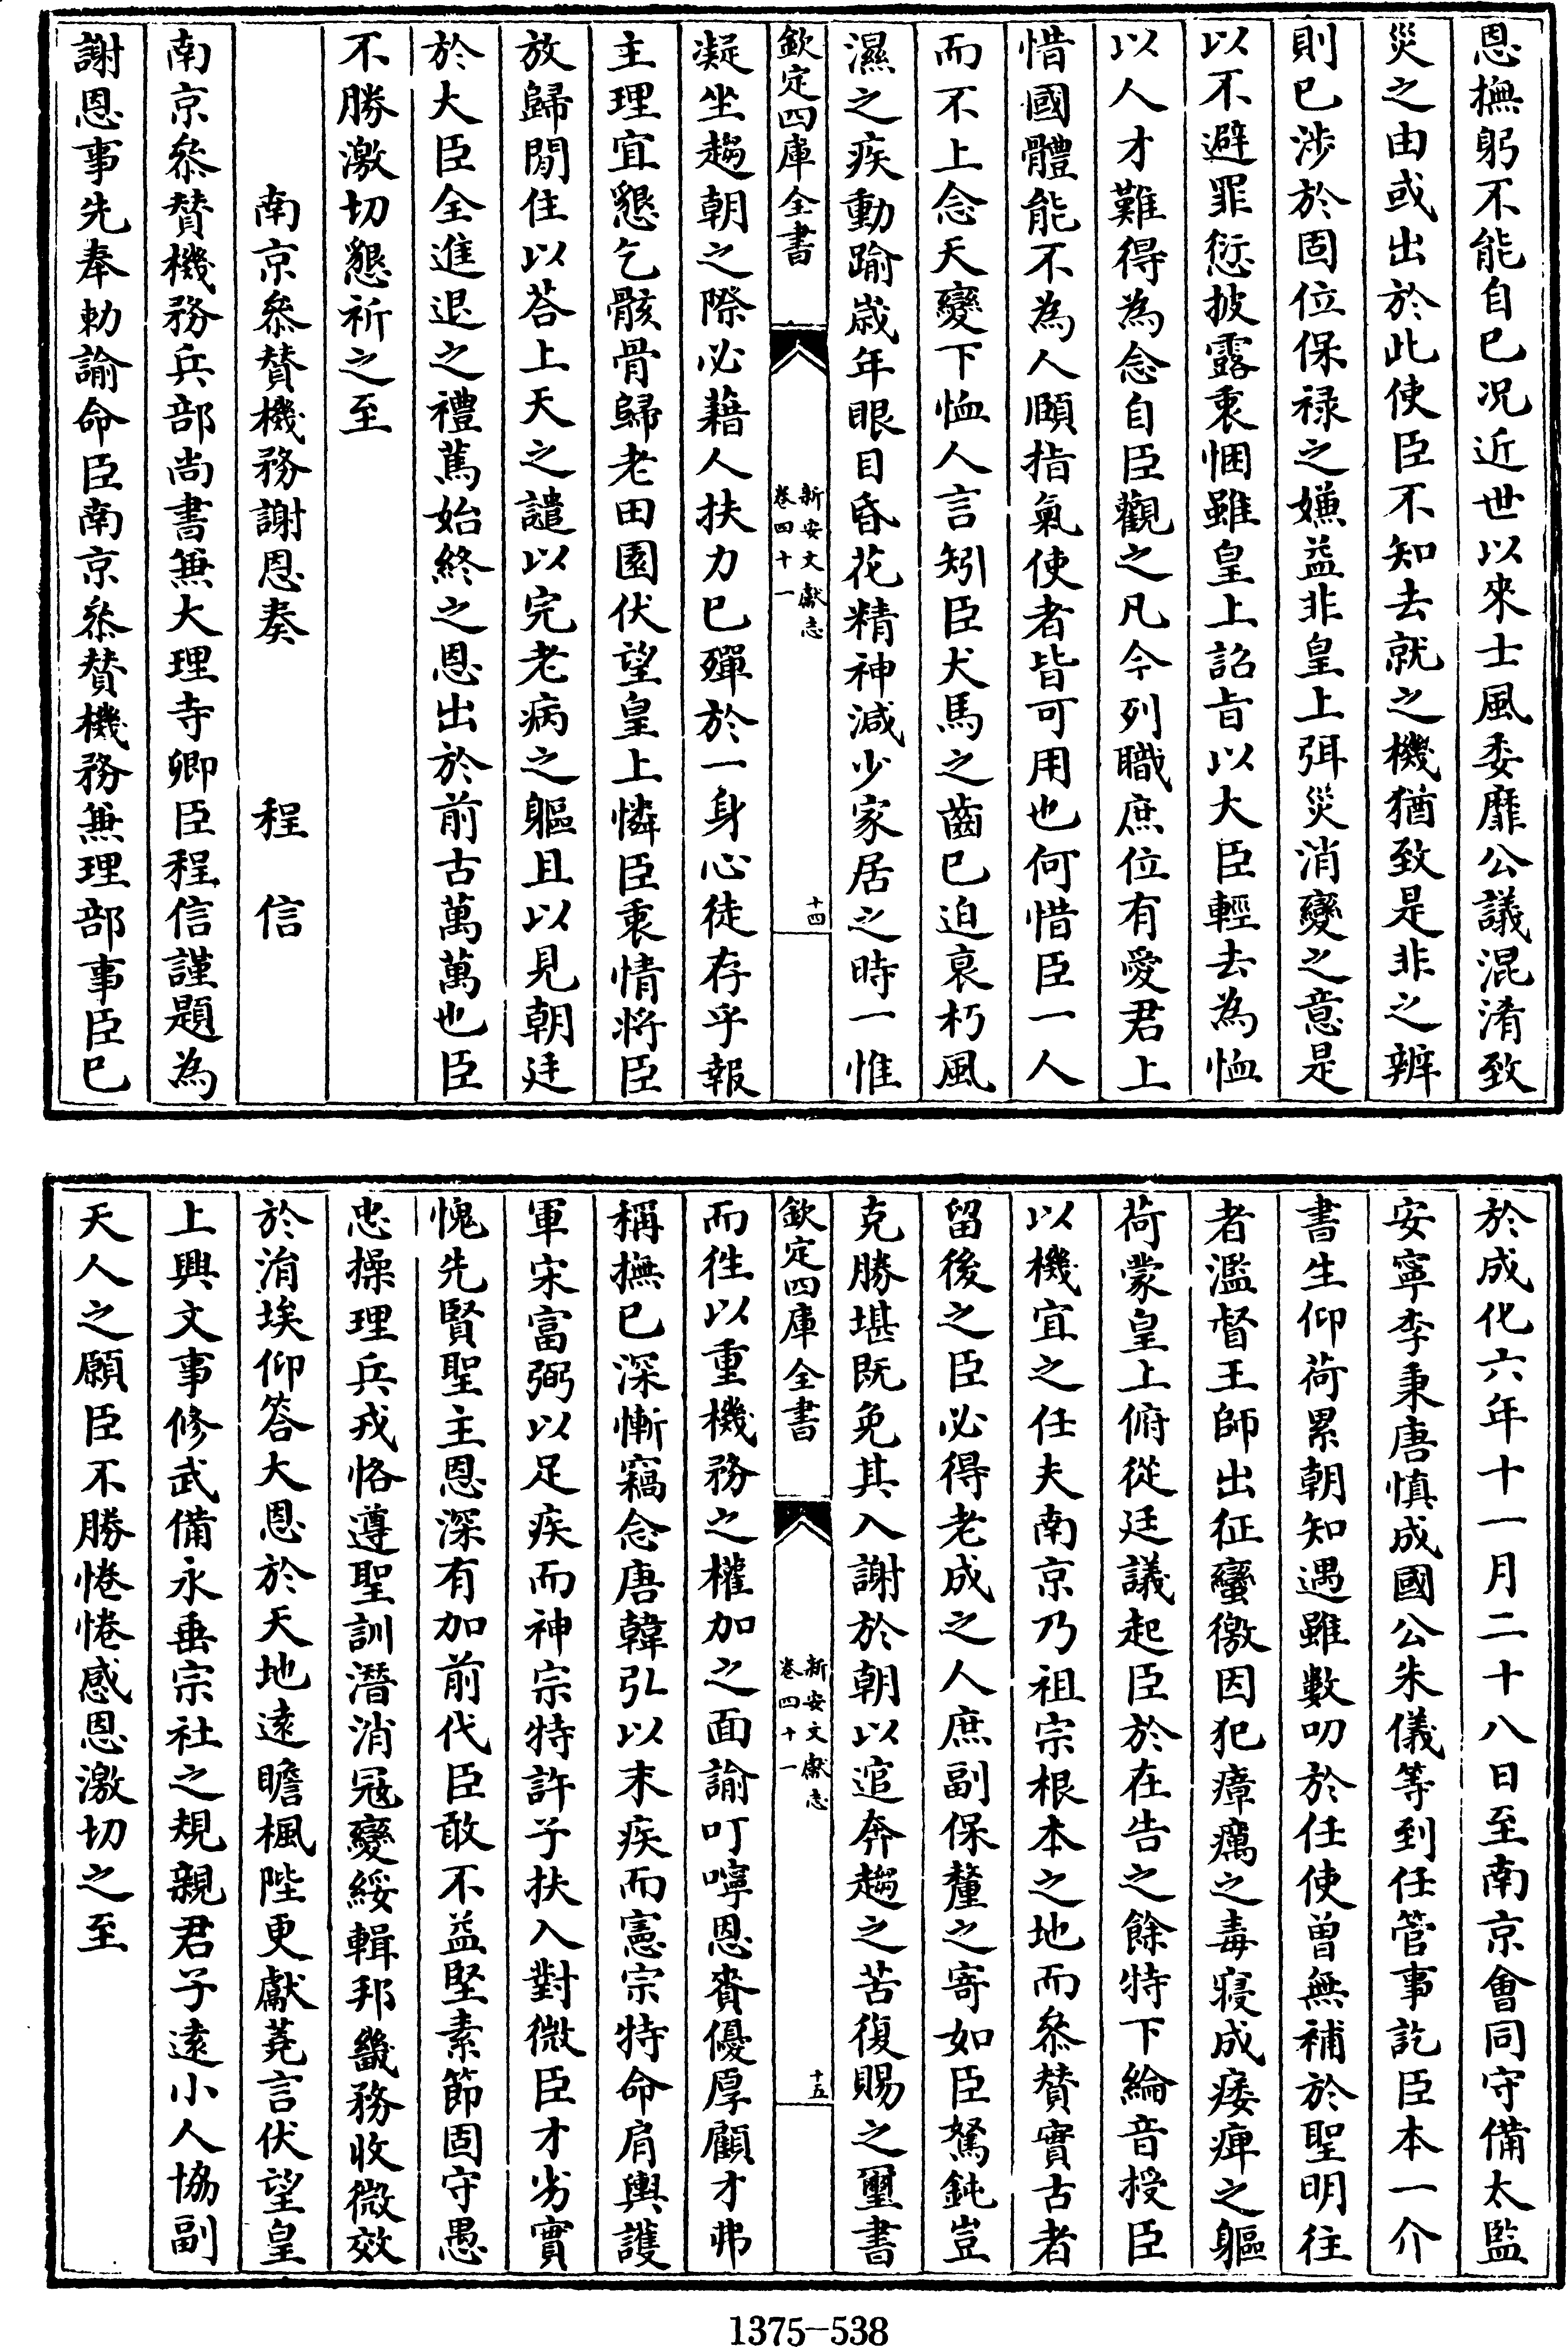 恩撫躬不能自已况近世以來士風委靡公議混淆致
災之由或出於此使臣不知去就之機猶致是非之辨
則已涉於固位保禄之嫌益非皇上弭災消變之意是
以不避罪愆披露衷悃雖皇上詔旨以大臣輕去為恤
以人才難得為念自臣觀之凡今列職庶位有愛君上
惜國體能不為人頤指氣使者皆可用也何惜臣一人
而不上念天變下恤人言矧臣犬馬之齒已迫衰朽風
濕之疾動踰歳年眼目昏花精神減少家居之時一惟
欽定四庫全書
新安文獻志
卷四十一
十四
凝坐趨朝之際必藉人扶力已殫於一身心徒存乎報
主理宜懇乞骸骨歸老田園伏望皇上憐臣衷情將臣
放歸閒住以荅上天之譴以完老病之軀且以見朝廷
於大臣全進退之禮篤始終之恩出於前古萬萬也臣
不勝激切懇祈之至
南京叅賛機務謝恩奏 程信
南京叅賛機務兵部尚書兼大理寺卿臣程信謹題為
謝恩事先奉勅諭命臣南京叅賛機務兼理部事臣已
於成化六年十一月二十八日至南京會同守備太監
安寧李秉唐慎成國公朱儀等到任管事訖臣本一介
書生仰荷累朝知遇雖數叨於任使曽無補於聖明往
者濫督王師出征蠻徼因犯瘴癘之毒寖成痿痺之軀
荷蒙皇上俯從廷議起臣於在告之餘特下綸音授臣
以機宜之任夫南京乃祖宗根本之地而叅賛實古者
留後之臣必得老成之人庶副保釐之寄如臣駑鈍豈
克勝堪既免其入謝於朝以逭奔趨之苦復賜之璽書
欽定四庫全書
新安文獻志
卷四十一
十五
而徃以重機務之權加之面諭叮嚀恩賚優厚顧才弗
稱撫已深慚竊念唐韓弘以末疾而憲宗特命肩輿護
軍宋富弼以足疾而神宗特許子扶入對微臣才劣實
愧先賢聖主恩深有加前代臣敢不益堅素節固守愚
忠操理兵戎恪遵聖訓潛消冦變綏輯邦畿務收微效
於涓埃仰答大恩於天地遠瞻楓陛更獻蕘言伏望皇
上興文事修武備永垂宗社之規親君子遠小人協副
天人之願臣不勝惓惓感恩激切之至
1375-538